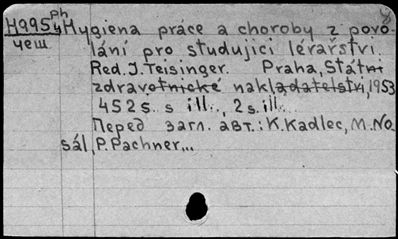 ph 8
H9954 Hygiena práce a choroby z povo-
чеш lání pro studující lékařství.
Red. J. Teisinger. Praha, Státní
zdravotnické nakladatelství, 1953
452 s. s ill., 2 s. ill.
Перед загл. авт.: K. Kadlec, M. No
sál, P. Pachner...